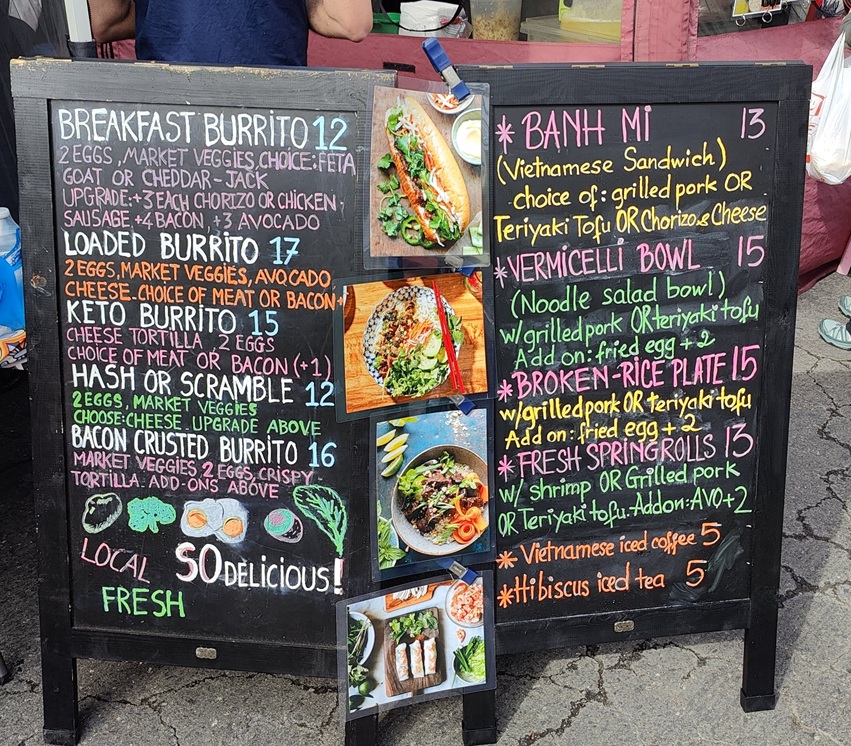 BREAKFAST BURRITO 12
2 EGGS, MARKET VEGGIES, CHOICE: FETA
GOAT OR CHEDDAR-JACK
UPGRADE: +3 EACH CHORIZO OR CHICKEN;
SAUSAGE +4 BACON, +3 AVOCADO
LOADED BURRITO 17
2 EGGS, MARKET VEGGIES, AVOCADO
CHEESE-CHOICE OF MEAT OR BACON+
KETO BURRITO 15
CHEESE TORTILLA 2 EGGS
CHOICE OF MEAT OR BACON (+1)
HASH OR SCRAMBLE 12
2 EGGS, MARKET VEGGIES
CHOOSE: CHEESE. UPGRADE ABOVE
BACON CRUSTED BURRITO 16
MARKET VEGGIES 2 EGGS, CRISPY
TORTILLA. ADD-ONS ABOVE
LOCAL
SO DELICIOUS!
FRESH
* BANH MI 13
(Vietnamese Sandwich)
choice of: grilled pork OR
Teriyaki Tofu OR Chorizo & Cheese
* VERMICELLI BOWL 15
(Noodle salad bowl)
w/ grilled pork OR teriyaki tofu
Add on: fried egg + 2
* BROKEN-RICE PLATE 15
w/ grilled pork OR teriyaki tofu
Add on: fried egg + 2
* FRESH SPRING ROLLS 13
w/ shrimp OR Grilled pork
OR Teriyaki tofu. Add on: AVO + 2
* Vietnamese iced coffee 5
* Hibiscus iced tea 5